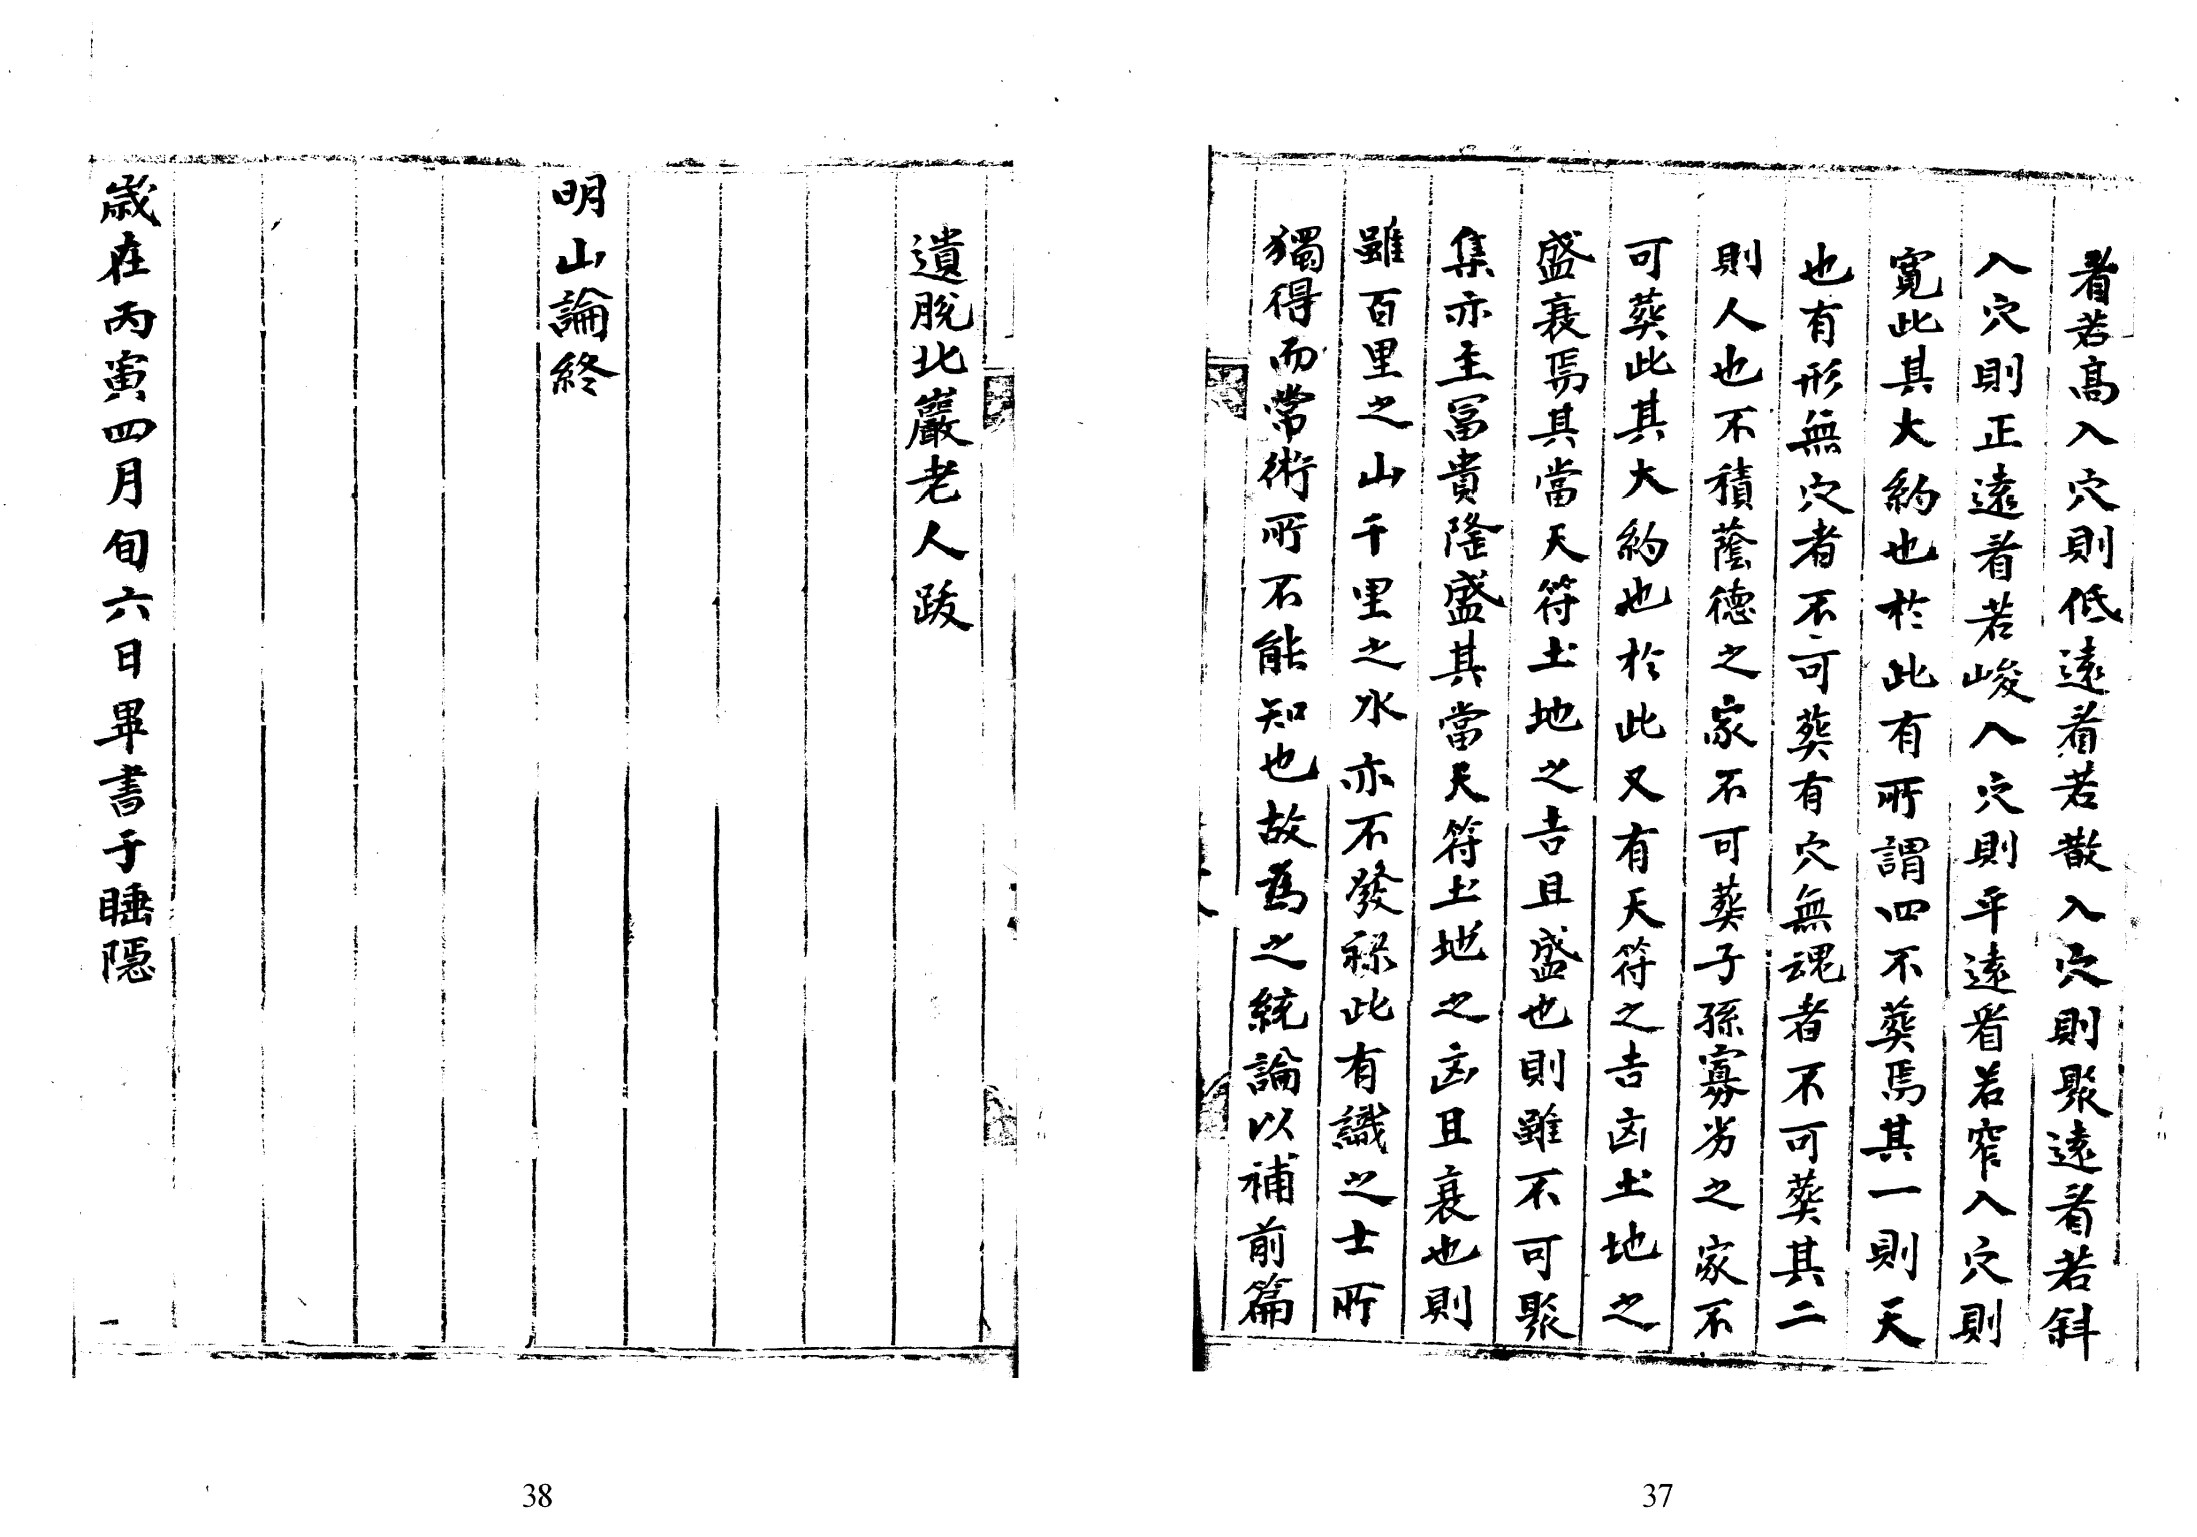 看若高入穴則低遠看若散入穴則聚遠看若斜
入穴則正遠看若峻入穴則平遠看若窄入穴則
寬此其大約也於此有所謂四不葬焉其一則天
也有形無穴者不可葬有穴無魂者不可葬其二
則人也不積蔭德之家不可葬子孫寡劣之家不
可葬此其大約也於此又有天符之吉凶土地之
盛衰焉其當天符土地之吉且盛也則雖不可聚
集亦主冨貴隆盛其當天符土地之凶且衰也則
雖百里之山千里之水亦不發祿此有識之士所
獨得而常術所不能知也故為之統論以補前篇
37
遺脫北巖老人跋
明山論終
歲在丙寅四月旬六日畢書于睡隱
38